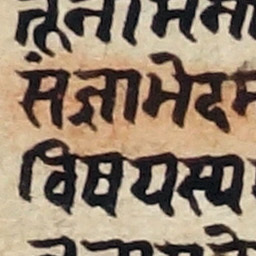 तूनामना
संज्ञामेदम
विषयस्य